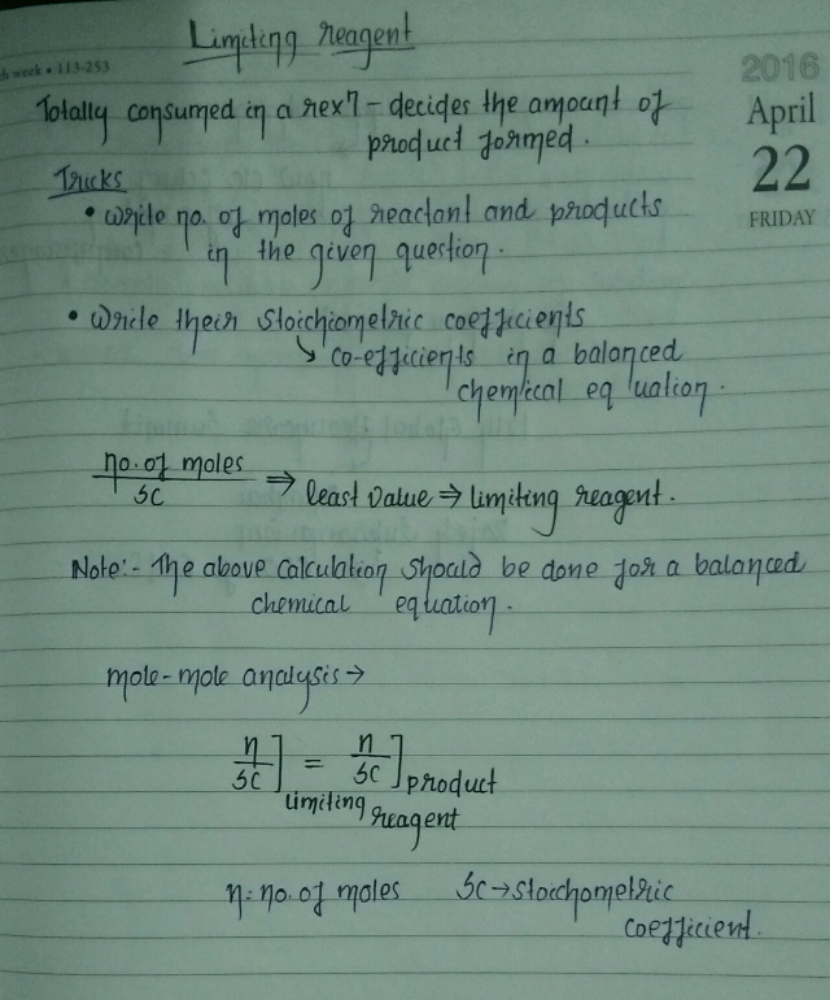 Limiting reagent
h week • 113-253
2016
April
22
FRIDAY
Totally consumed in a rexⁿ - decides the amount of
product formed.
Tricks
• write no. of moles of reactant and products
in the given question.
• Write their Stoichiometric coefficients
↘ co-efficients in a balanced
chemical equation.
no. of moles
SC
⇒ least value ⇒ limiting reagent.
Note:- The above calculation should be done for a balanced
chemical equation.
mole-mole analysis →
n/SC] = n/SC] product
limiting reagent
n: no. of moles SC → stoichometric
coefficient.